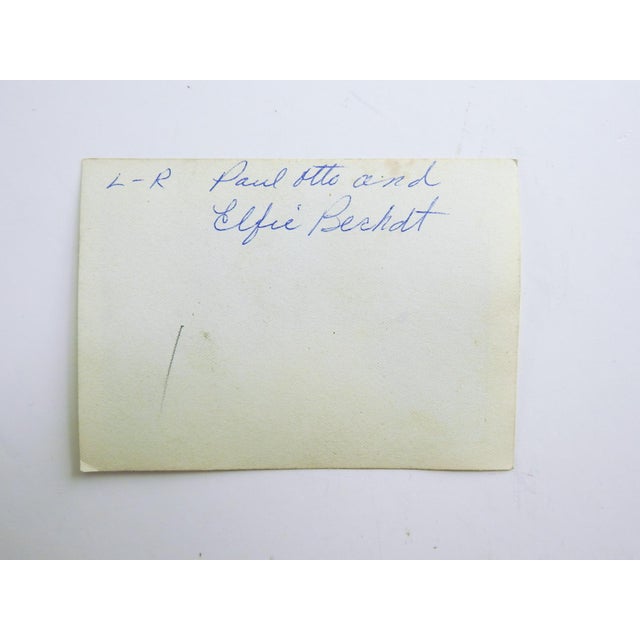 L-R Paul Otto and
Elfie Bechdt